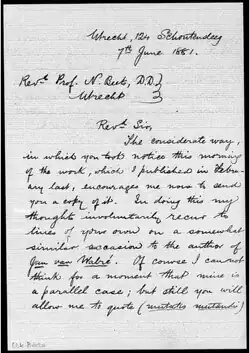 Utrecht, 124 Schoutendag
7th June 1881.
Revd. Prof. N. Beets, D.D.
Utrecht
Revd. Sir,
The considerate way,
in which you took notice this morning
of the work, which I published in Febru-
ary last, encourages me now to send
you a copy of it. In doing this my
thoughts involuntarily recur to
lines of your own on a somewhat
similar occasion to the author of
Jan van
Of course I cannot
think for a moment that mine is
a parallel case; but still you will
allow me to quote (mutatis mutandis)